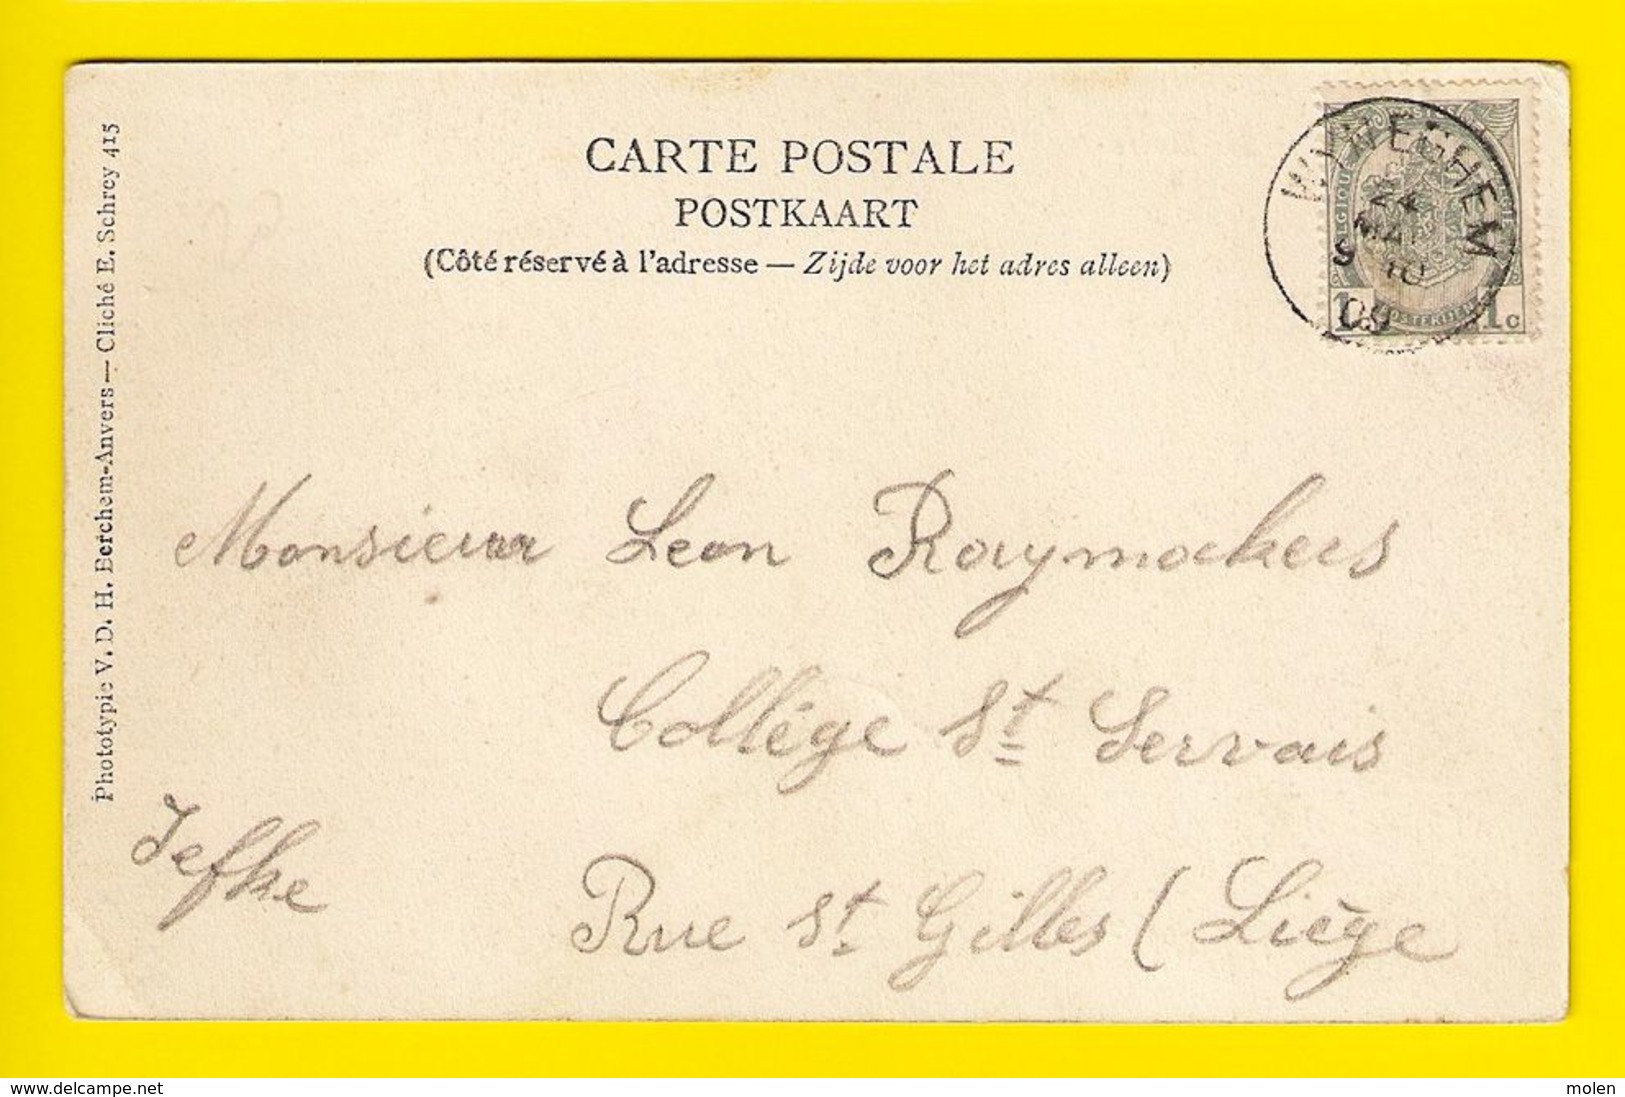 CARTE POSTALE
POSTKAART
(Côté réservé à l'adresse — Zijde voor het adres alleen)
WYNEGHEM
24
MAI
S 10
09
1c 1c
Phototypie V. D. H. Berchem-Anvers — Cliché E. Schrey 415
Monsieur Leon Raymackers
Collége St Servais
Jefke
Rue St. Gilles (Liège
www.delcampe.net
molen